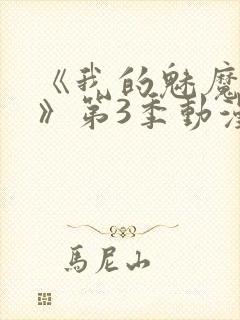 《我的魅魔
》第3季動漫
馬尼山